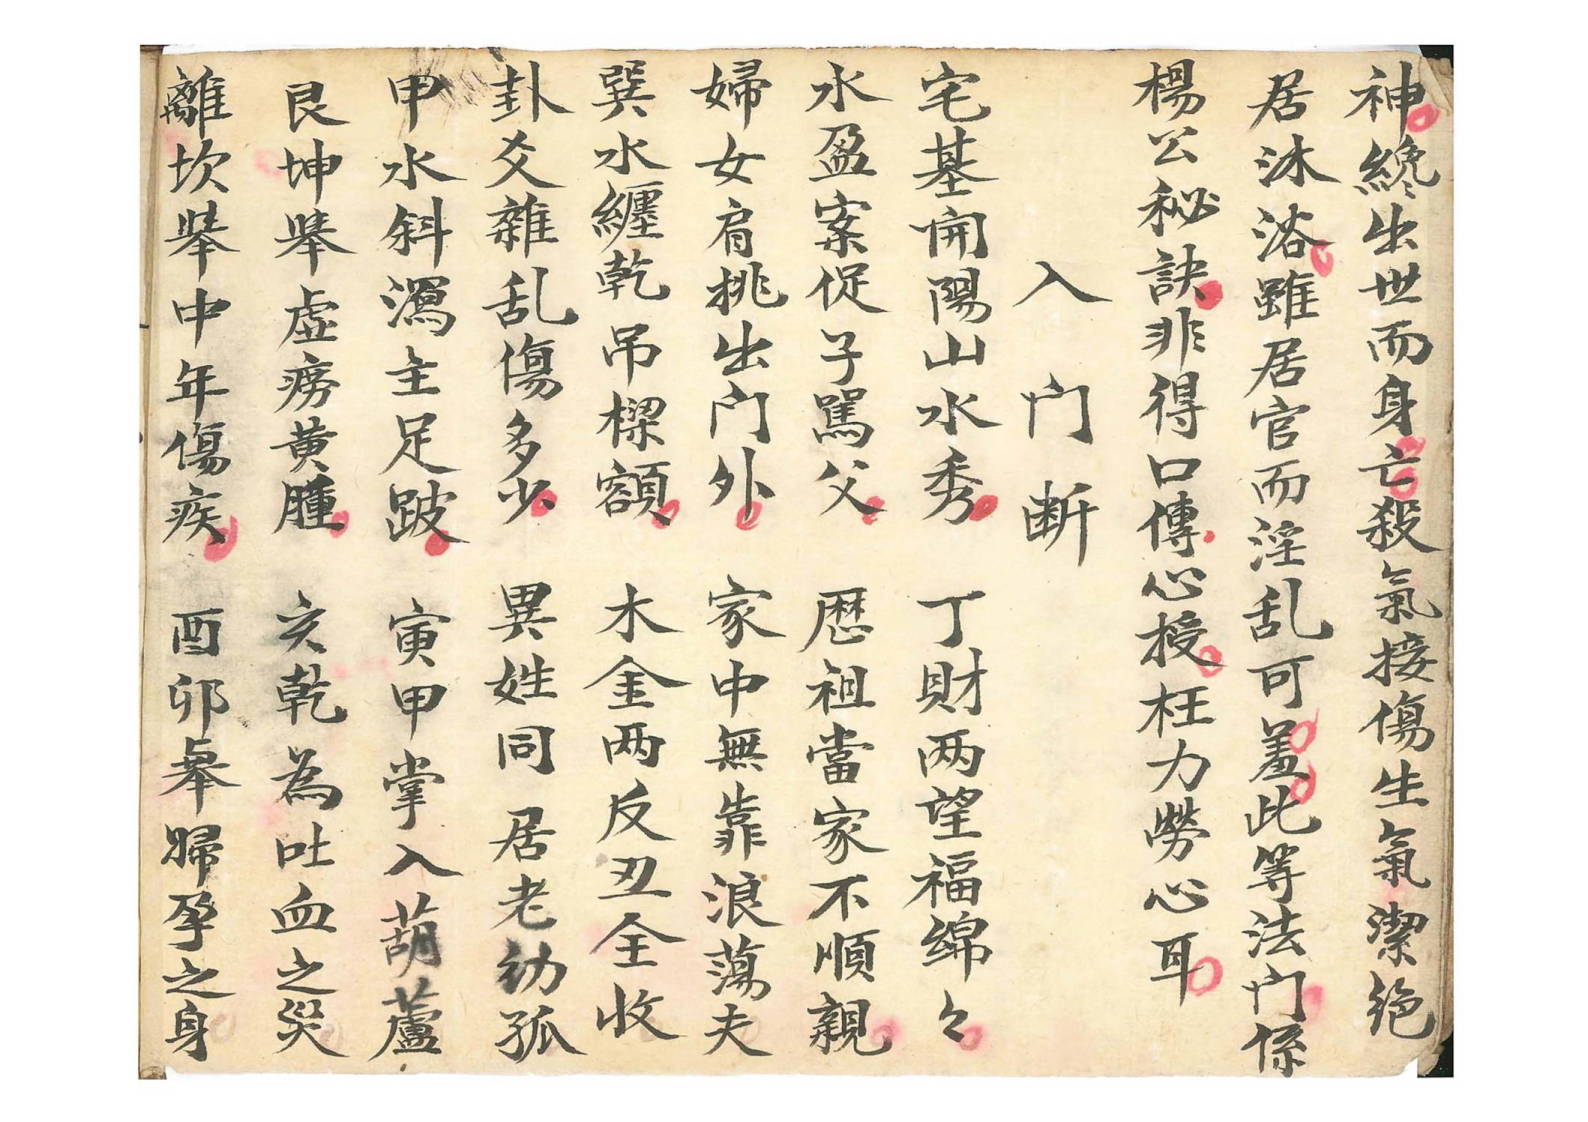 神纔出世而身亡殺氣接傷生氣潔絶
居沐浴雖居官而淫乱可羞此等法门係
楊公秘訣非得口傳心授枉力勞心耳
入门断
宅基開陽山水秀 丁財两望福綿々
水盈案促子罵父 歴祖當家不順親
婦女肩挑出门外 家中無靠浪蕩夫
巽水纏乾吊樑額 木金两反刄全收
卦爻雜乱傷多少 異姓同居老幼孤
甲水斜瀉主足跛 寅甲掌入葫蘆
艮坤舉虚癆黄腫 亥乾為吐血之災
離坎舉中年傷疾 酉卯舉婦孕之身